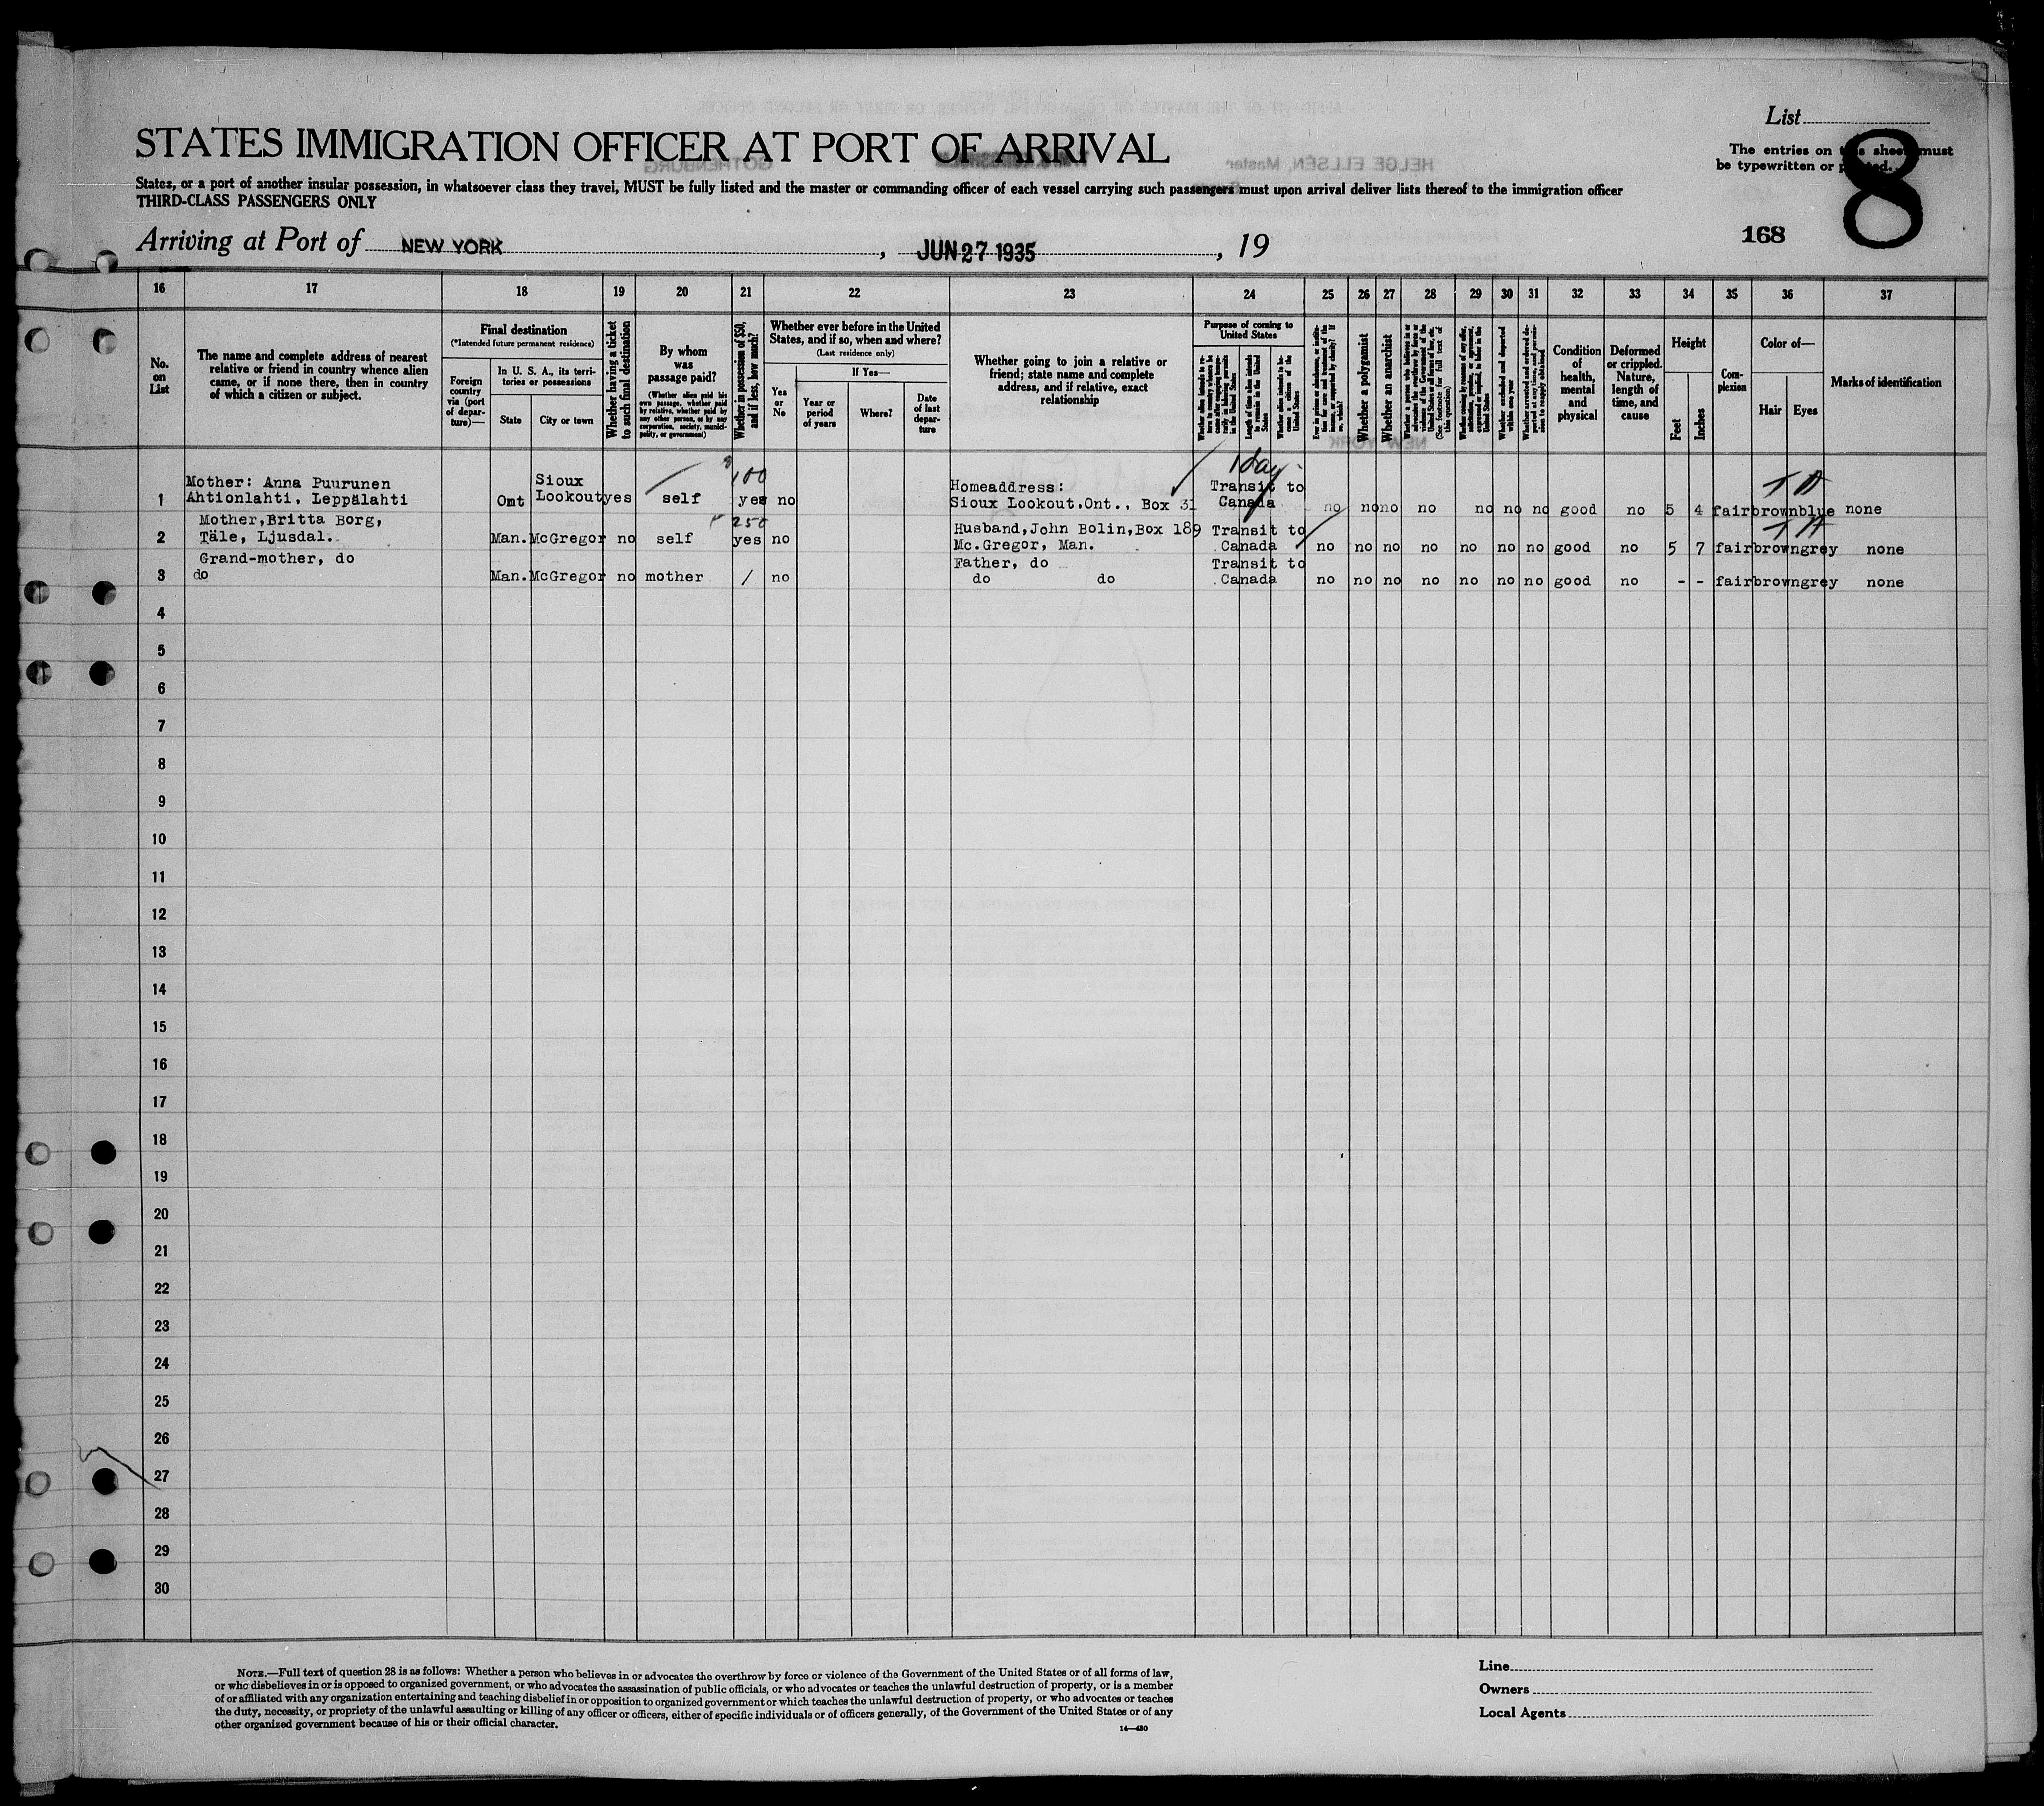 List
STATES IMMIGRATION OFFICER AT PORT OF ARRIVAL
The entries on this sheet must
be typewritten or printed.
8
States, or a port of another insular possession, in whatsoever class they travel, MUST be fully listed and the master or commanding officer of each vessel carrying such passengers must upon arrival deliver lists thereof to the immigration officer
THIRD-CLASS PASSENGERS ONLY
Arriving at Port of NEW YORK, JUN 27 1935, 19
168
16 17 18 19 20 21 22 23 24 25 26 27 28 29 30 31 32 33 34 35 36 37
No.
on
List
The name and complete address of nearest
relative or friend in country whence alien
came, or if none there, then in country
of which a citizen or subject.
Final destination
(*Intended future permanent residence)
Foreign
country
via (port
of depar-
ture)—
In U. S. A., its terri-
tories or possessions
State
City or town
Whether having a ticket
to such final destination
By whom
was
passage paid?
(Whether alien paid his
own passage, whether paid
by relative, whether paid by
any other person, or by any
corporation, society, munici-
pality, or government)
Whether in possession of $50,
and if less, how much?
Whether ever before in the United
States, and if so, when and where?
(Last residence only)
Yes
or
No
If Yes—
Year or
period
of years
Where?
Date
of last
depar-
ture
Whether going to join a relative or
friend; state name and complete
address, and if relative, exact
relationship
Purpose of coming to
United States
Whether alien intends to re-
turn to country whence he
came after engaging tempo-
rarily in laboring pursuits
in the United States
Length of time alien intends
to remain in the United
States
Whether alien intends to be-
come a citizen of the
United States
Whether a polygamist
Whether an anarchist
Whether arrested and deported
within one year
Condition
of
health,
mental
and
physical
Deformed
or crippled.
Nature,
length of
time, and
cause
Height
Feet
Inches
Com-
plexion
Color of—
Hair
Eyes
Marks of identification
1 day
100
Mother: Anna Puurunen Sioux Homeaddress: Transit to
1 Ahtionlahti, Leppälahti Ont Lookout yes self yes no Sioux Lookout,Ont., Box 31 Canada no no no no no no no good no 5 4 fair brown blue none
250
Mother,Britta Borg, Husband,John Bolin,Box 189 Transit to
2 Täle, Ljusdal. Man. McGregor no self yes no Mc.Gregor, Man. Canada no no no no no no no good no 5 7 fair brown grey none
Grand-mother, do Father, do Transit to
3 do Man. McGregor no mother / no do do Canada no no no no no no no good no - - fair brown grey none
4
5
6
7
8
9
10
11
12
13
14
15
16
17
18
19
20
21
22
23
24
25
26
27
28
29
30
NOTE.—Full text of question 28 is as follows: Whether a person who believes in or advocates the overthrow by force or violence of the Government of the United States or of all forms of law,
or who disbelieves in or is opposed to organized government, or who advocates the assassination of public officials, or who advocates or teaches the unlawful destruction of property, or is a member
of or affiliated with any organization entertaining and teaching disbelief in or opposition to organized government or which teaches the unlawful destruction of property, or who advocates or teaches
the duty, necessity, or propriety of the unlawful assaulting or killing of any officer or officers, either of specific individuals or of officers generally, of the Government of the United States or of any
other organized government because of his or their official character.
14—430
Line
Owners
Local Agents